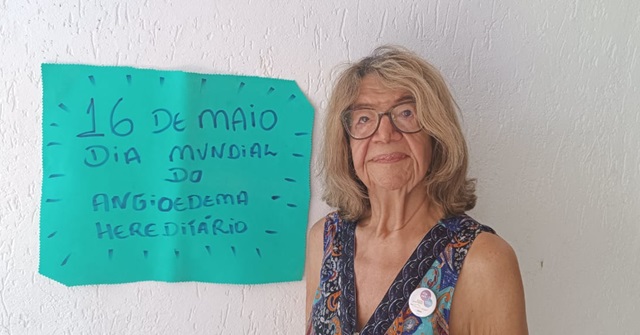 16 DE MAIO
DIA MUNDIAL
DO
ANGIOEDEMA
HEREDITÁRIO